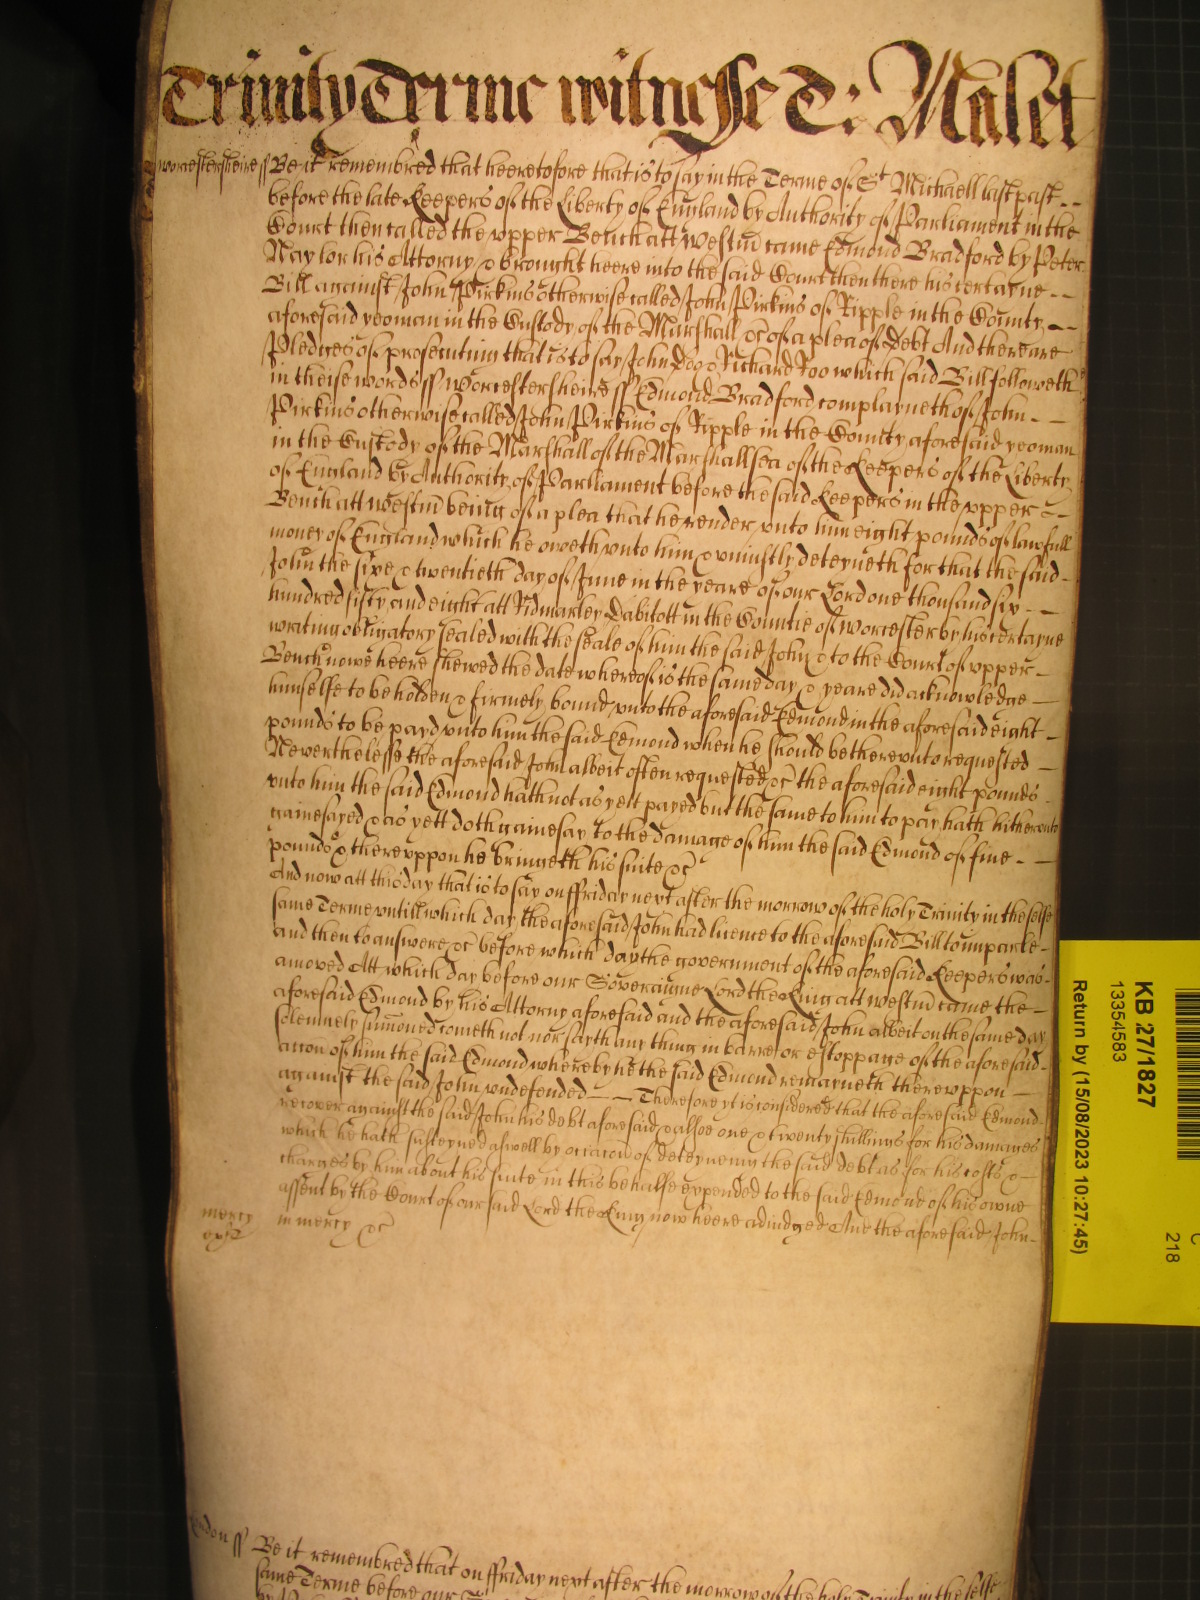 Trinity Terme witnesse T: Malet
Worcestersheire ss Be it remembred that heeretofore that is to say in the Terme of St Michaell last past
before the late Keepers of the Liberty of England by Authority of Parliament in the
Court then called the vpper Bench att Westm came Edmond Bradford by Peter
Naylor his Attorny & brought heere into the said Court then there his certayne
Bill against John Pirkins otherwise called John Pirkins of Ripple in the County
aforesaid yeoman in the Custody of the Marshall &c of a plea of Debt And there are
Pledges of prosecuting that is to say John Doo & Richard Roo which said Bill followeth
in theise words ss Worcestersheire ss Edmond Bradford complayneth of John
Pirkins otherwise called John Pirkins of Ripple in the County aforesaid yeoman
in the Custody of the Marshall of the Marshallsea of the Keepers of the Liberty
of England by Authority of Parliament before the said Keepers in the vpper
Bench att Westm being of a plea that he render vnto him eight pounds of lawfull
money of England which he oweth vnto him & vniustly deteyneth for that the said
John the sixe & twentieth day of June in the yeare of our Lord one thousand six
hundred fifty and eight att Ridmarley Dabitott in the Countie of Worcester by his certayne
writing obligatory sealed with the seale of him the said John & to the Court of vpper
Bench nowe heere shewed the date whereof is the same day & yeare did acknowledge
himselfe to be holden & firmely bound vnto the aforesaid Edmond in the aforesaid eight
pounds to be payd vnto him the said Edmond when he should be therevnto requested
Neverthelesse the aforesaid John albeit often requested &c the aforesaid eight pounds
vnto him the said Edmond hath not as yett payed but the same to him to pay hath hitherunto
gainesayed & as yett doth gainesay to the damage of him the said Edmond of five
pounds & therevppon he bringeth his suite &c
And now att this day that is to say on ffriday next after the morrow of the holy Trinity in the selfe
same Terme vntill which day the aforesaid John had licence to the aforesaid Bill to imparle
and then to answere &c before which day the government of the aforesaid Keepers was
amoved Att which day before our Soveraigne Lord the King att Westm came the
aforesaid Edmond by his Attorny aforesaid and the aforesaid John albeit on the same day
solemnely sumoned cometh not nor sayth any thing in barre or estoppage of the aforesaid
accon of him the said Edmond whereby he the said Edmond remayneth therevppon
against the said John vndefended Therefore yt is considered that the aforesaid Edmond
recover against the said John his debt aforesaid & alsoe one & twenty shillings for his damages
which he hath susteyned aswell by occacon of deteyneing the said debt as for his costs &
charges by him about his suite in this behalfe expended to the said Edmond of his owne
assent by the Court of our said Lord the King now heere adiudged And the aforesaid John
mercy in mercy &c
London ss Be it remembred that on ffriday next after the morrow of the holy Trinity in the selfe
same Terme before our
KB 27/1827
13354583
Return by (15/08/2023 10:27:45)
C
218